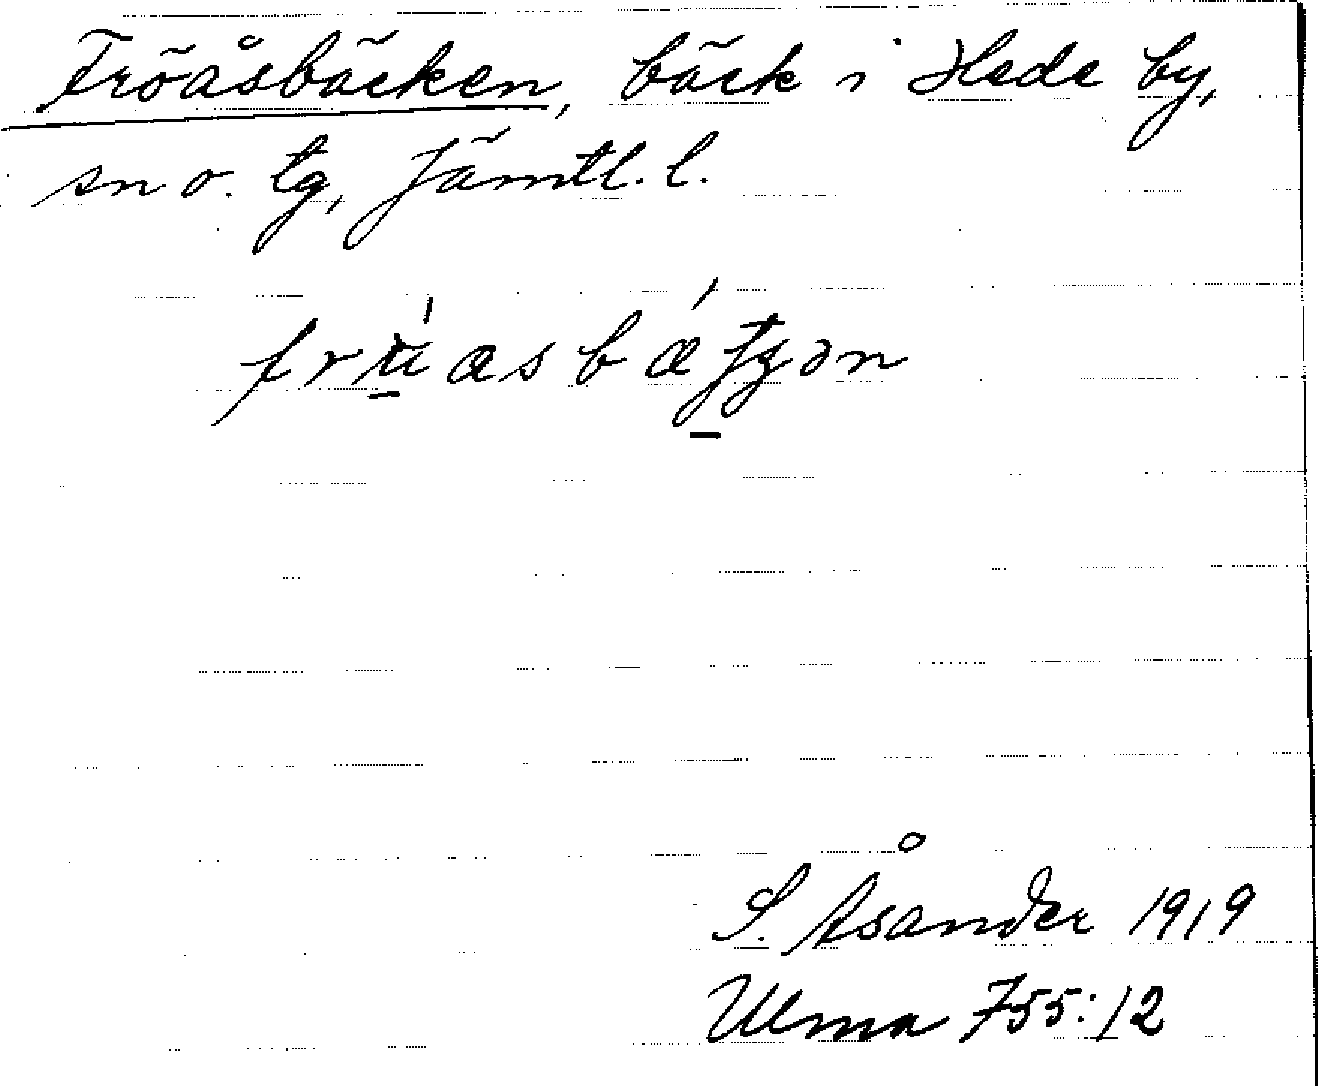 Fröåsbäcken, bäck i Hede by,
sn o. tg, Jämtl. l.
S. Åsander 1919
Ulma 755:12